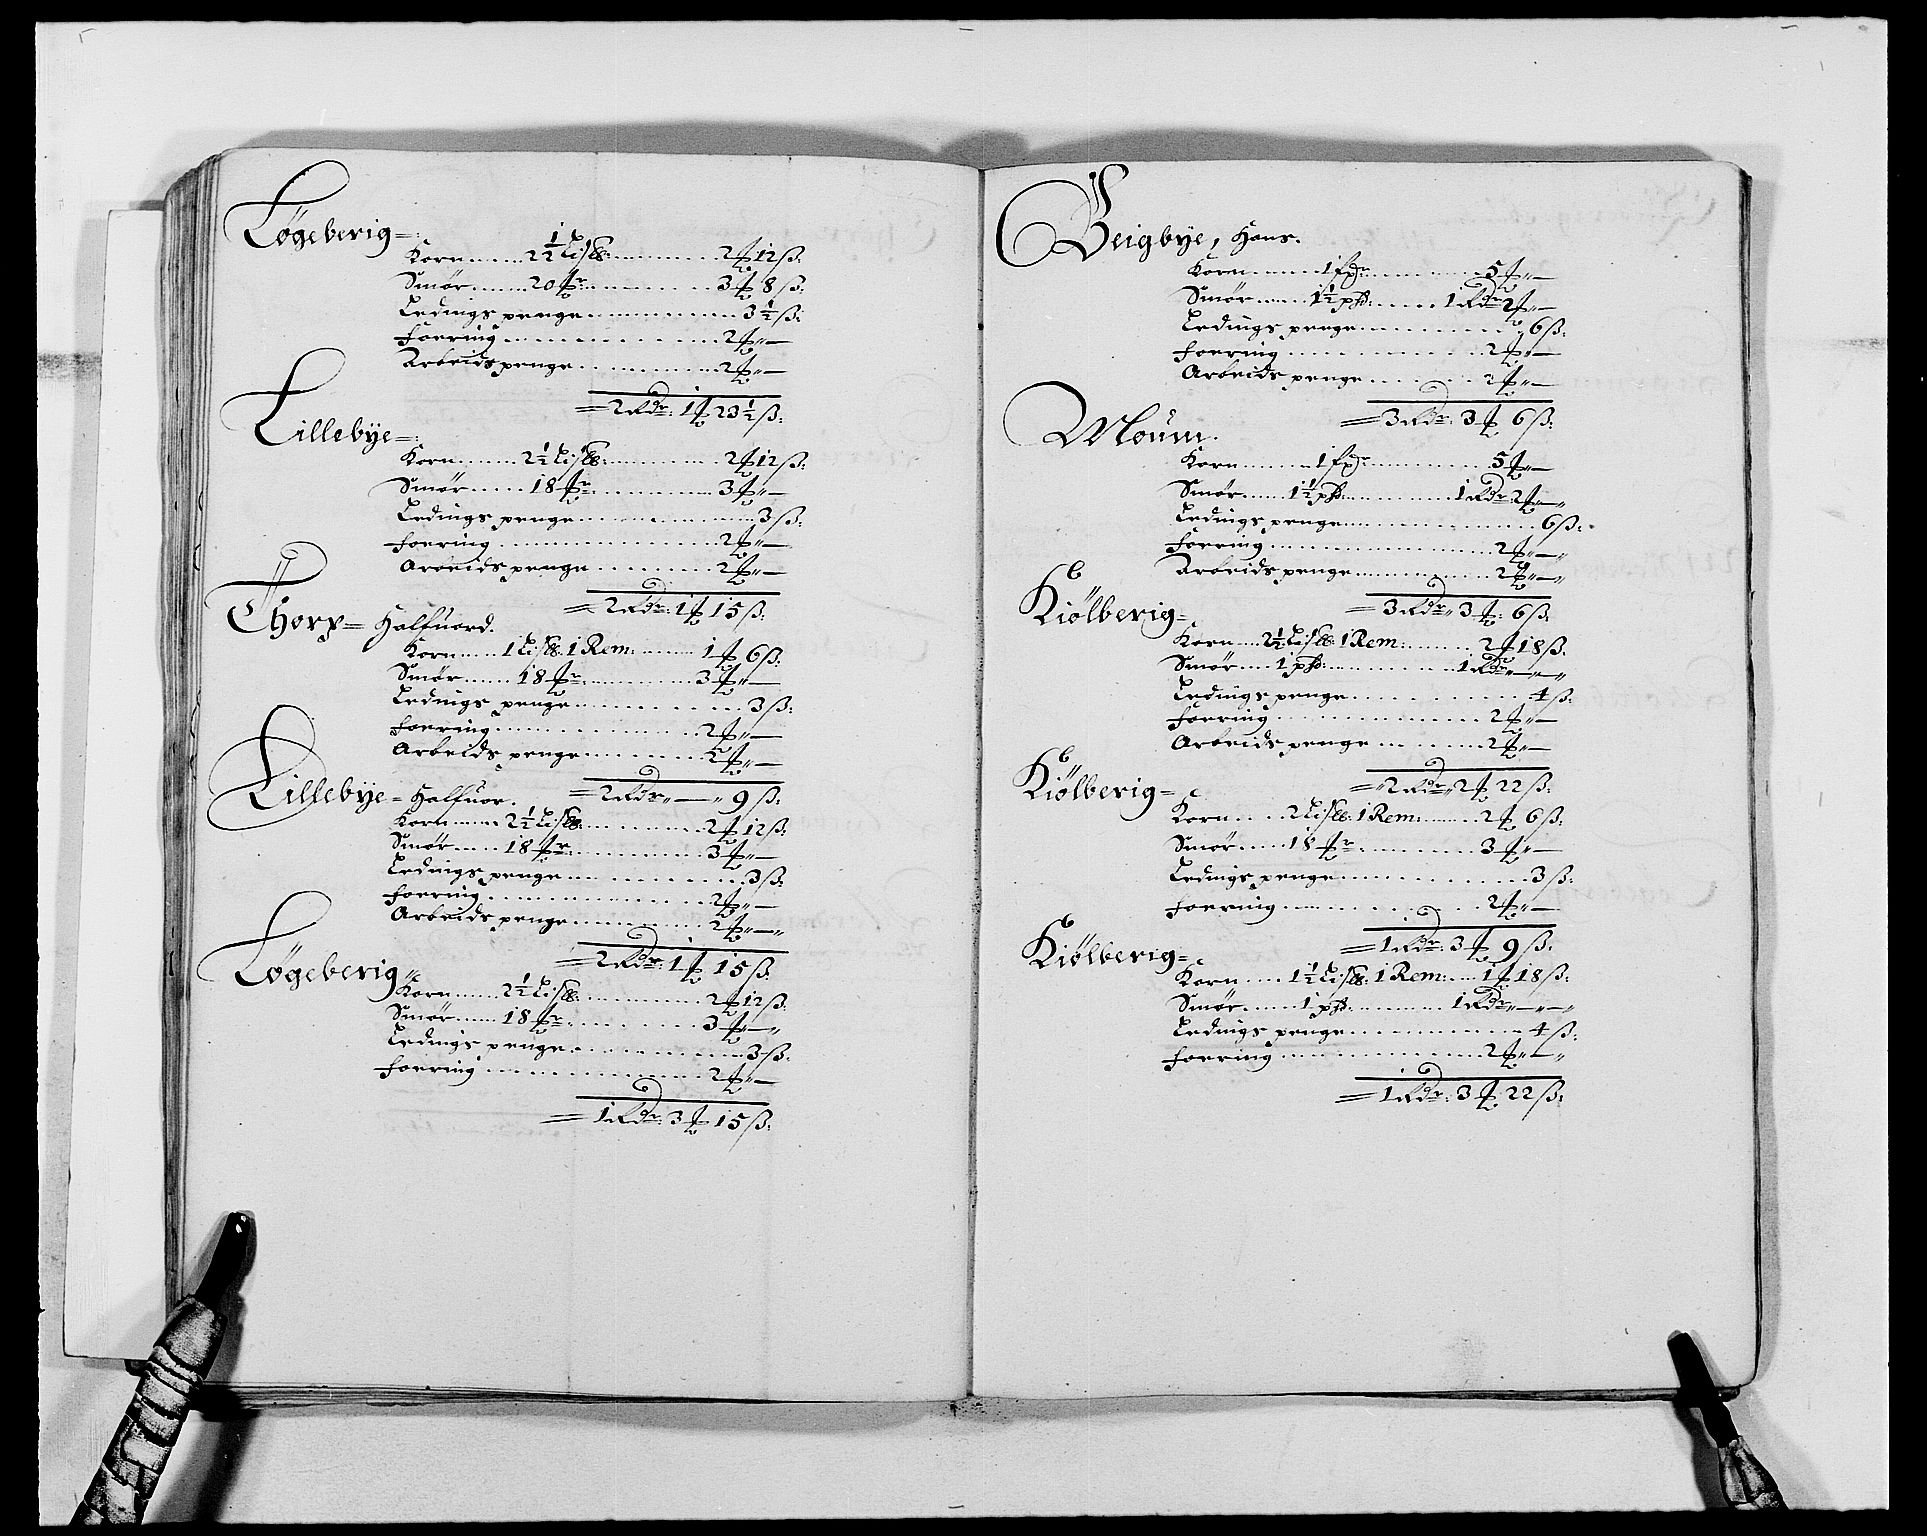 Løgeberig=:
Korn 2½ Lispd: 2 ₰ 12 ß:
Smør 20 mr 3 ₰ 8 ß:
Ledings penge 3½ ß:
Foering 2 ₰ „ —
Arbeids penge 2 ₰ „ —
= 2 Rdr: 1 ₰ 23½ ß:
Lillebye=:
Korn 2½ Lispd: 2 ₰ 12 ß:
Smør 18 mr 3 ₰ „ —
Ledings penge 3 ß:
Foering 2 ₰ „ —
Arbeids penge 2 ₰ „ —
= 2 Rdr: 1 ₰ 15 ß:
Thorp= Halfuord.
Korn 1 Lispd: 1 Rem: 1 ₰ 6 ß:
Smør 18 mr 3 ₰ „ —
Ledings penge 3 ß:
Foering 2 ₰ „ —
Arbeids penge 2 ₰ „ —
= 2 Rdr „ — „ 9 ß:
Lillebye= Halfuor.
Korn 2½ Lispd: 2 ₰ 12 ß:
Smør 18 mr 3 ₰ „ —
Ledings penge 3 ß:
Foering 2 ₰ „ —
Arbeids penge 2 ₰ „ — „
= 2 Rdr: 1 ₰ 15 ß:
Løgeberig
Korn 2½ Lispd: 2 ₰ 12 ß:
Smør 18 mr 3 ₰ „ — „
Ledings penge 3 ß:
Foering 2 ₰ „ —
= 1 Rdr: 3 ₰ 15 ß:
Beigbye, Hans.
Korn 1 spr 5 ₰ „ —
Smør 1½ pd: 1 Rdr 2 ₰ „ —
Ledings penge „ 6 ß:
Foering 2 ₰ „ —
Arbeids penge 2 ₰ „ —
= 3 Rdr: 3 ₰ 6 ß:
Moum.
Korn 1 spr 5 ₰ „ —
Smør 1½ pd: 1 Rdr: 2 ₰ — „
Ledings penge 6 ß:
Foering 2 ₰ „ — „
Arbeids penge 2 ₰ „ — „
= 3 Rdr „ 3 ₰: 6 ß:
Kiölberig=
Korn 2½ Lispd: 1 Rem: 2 ₰ 18 ß:
Smør 1 pd: 1 Rdr „ — „ — „
Ledings penge 4 ß:
Foering 2 ₰ „ —
Arbeids penge 2 ₰ „ —
= „ 2 Rdr „ 2 ₰ 22 ß:
Kiölberig=
Korn 2 Lispd: 1 Rem: 2 ₰ 6 ß:
Smør 18 mr 3 ₰ „ —
Ledings penge 3 ß:
Foering 2 ₰ „ —
= 1 Rdr: 3 ₰ 9 ß:
Kiölberig=
Korn 1½ Lispd: 1 Rem: 1 ₰ 18 ß:
Smør 1 pd: 1 Rdr „ — „ — „
Ledings penge 4 ß:
Foering 2 ₰ „ — „
= 1 Rdr: 3 ₰: 22 ß: